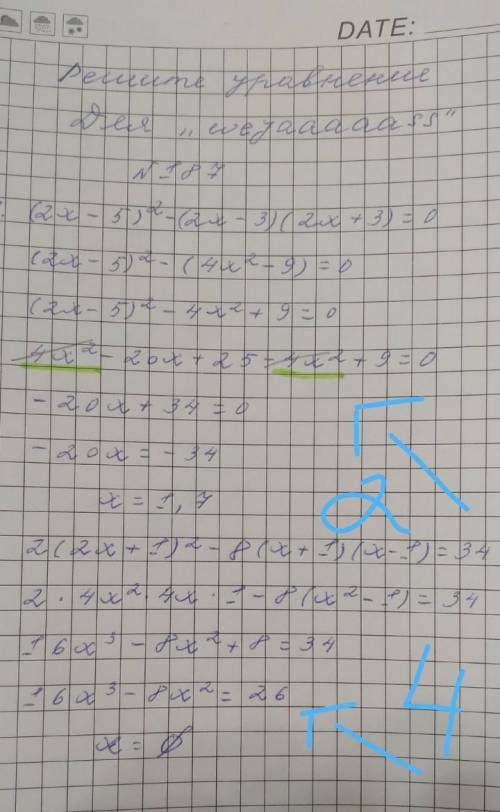 DATE:
Решите уравнение
Для „weyaaaaass"
N 187
(2x - 5)² - (2x - 3)(2x + 3) = 0
(2x - 5)² - (4x² - 9) = 0
(2x - 5)² - 4x² + 9 = 0
4x² - 20x + 25 - 4x² + 9 = 0
- 20x + 34 = 0
- 20x = - 34
x = 1,7
2
2(2x + 1)² - 8(x + 1)(x - 1) = 34
2 · 4x² · 4x · 1 - 8(x² - 1) = 34
16x³ - 8x² + 8 = 34
16x³ - 8x² = 26
x = ∅
4